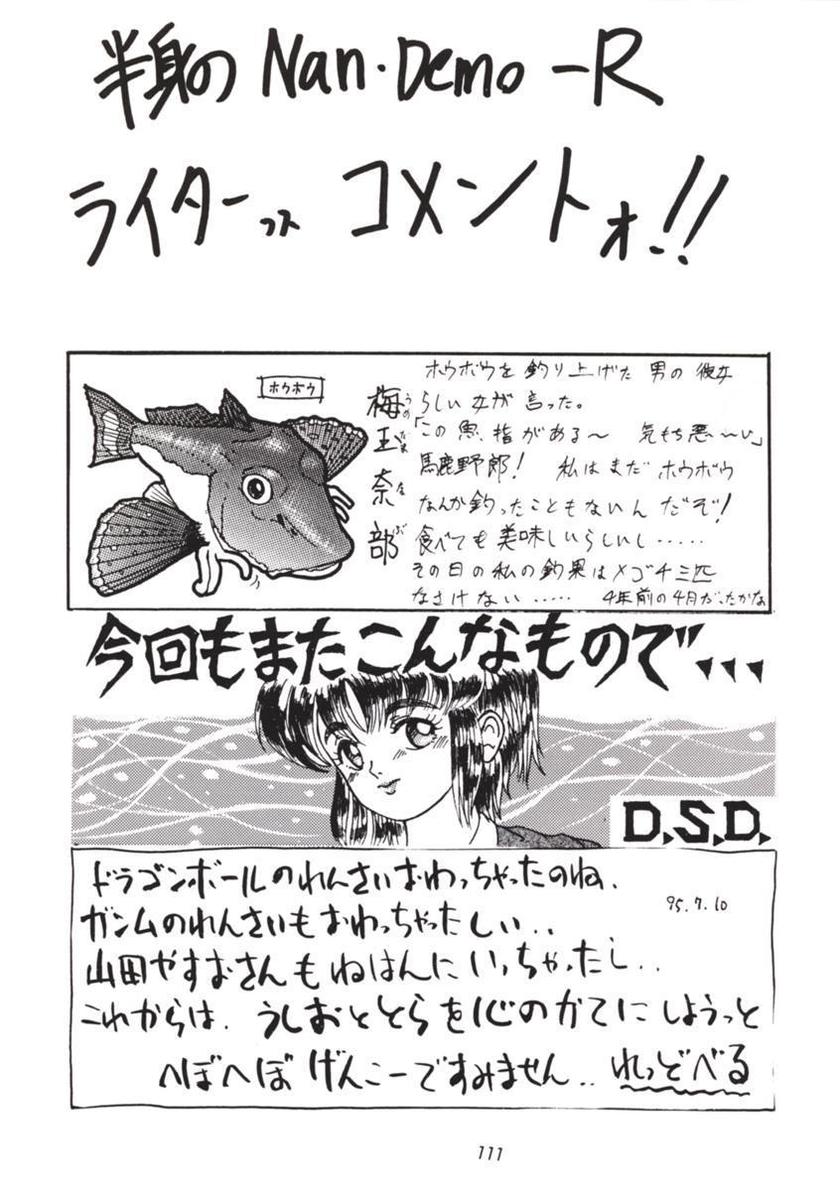 半身の Nan・Demo-R
ライターズ コメントォ!!
ホウボウ
梅玉奈部
うめ たま な べ
ホウボウを釣り上げた男の彼女
らしい女が言った。
「この魚、指がある〜 気もち悪〜い」
馬鹿野郎! 私はまだホウボウ
なんか釣ったこともないんだぞ!
食べても美味しいらしいし.....
その日の私の釣果はメゴチ三匹
なさけない..... 4年前の4月だったかな
今回もまたこんなもので...
D.S.D.
ドラゴンボールのれんさいおわっちゃったのね.
95.7.10
ガンムのれんさいもおわっちゃったしい..
山田やすおさんもねはんにいっちゃったし..
これからは. うしおととらを心のかてにしようっと
へぼへぼげんこーですみません.. れっどべる
111